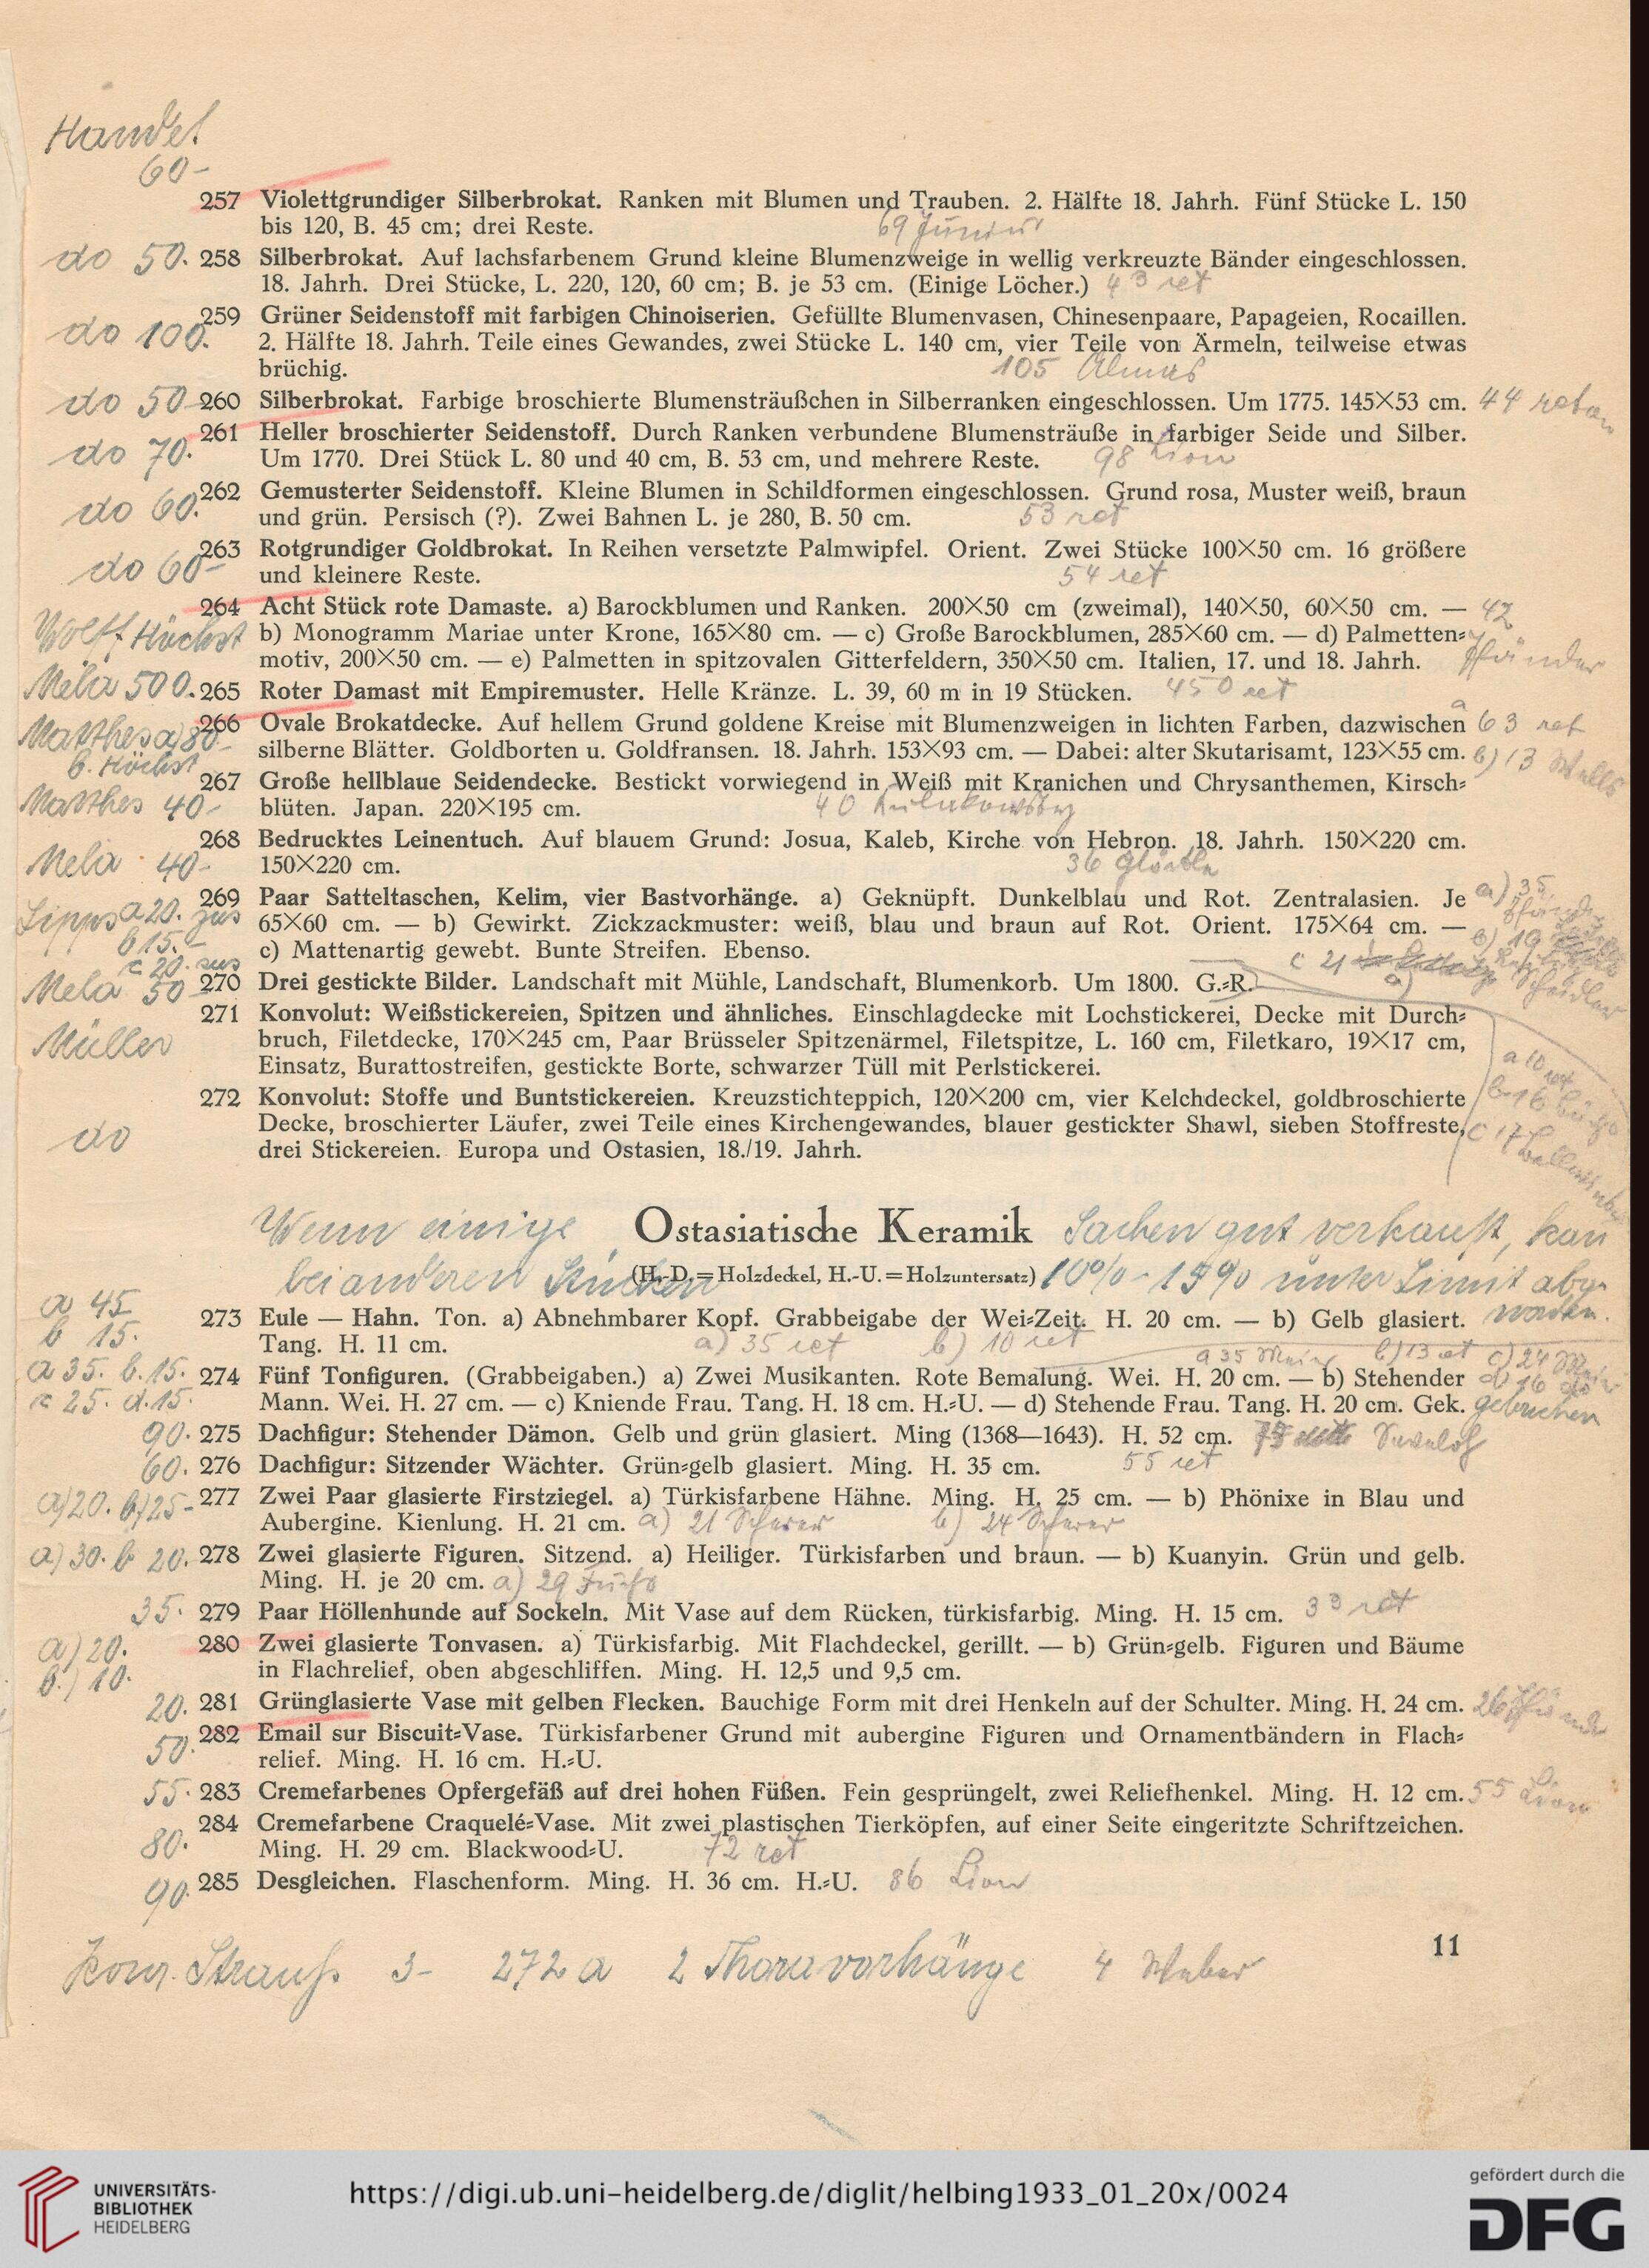 Handel
60-
257 Violettgrundiger Silberbrokat. Ranken mit Blumen und Trauben. 2. Hälfte 18. Jahrh. Fünf Stücke L. 150
bis 120, B. 45 cm; drei Reste. 69
do 50. 258 Silberbrokat. Auf lachsfarbenem Grund kleine Blumenzweige in wellig verkreuzte Bänder eingeschlossen.
18. Jahrh. Drei Stücke, L. 220, 120, 60 cm; B. je 53 cm. (Einige Löcher.) 43 ret
do 100. 259 Grüner Seidenstoff mit farbigen Chinoiserien. Gefüllte Blumenvasen, Chinesenpaare, Papageien, Rocaillen.
2. Hälfte 18. Jahrh. Teile eines Gewandes, zwei Stücke L. 140 cm, vier Teile von Ärmeln, teilweise etwas
brüchig. 105
do 50 260 Silberbrokat. Farbige broschierte Blumensträußchen in Silberranken eingeschlossen. Um 1775. 145×53 cm. 44
do 70. 261 Heller broschierter Seidenstoff. Durch Ranken verbundene Blumensträuße in farbiger Seide und Silber.
Um 1770. Drei Stück L. 80 und 40 cm, B. 53 cm, und mehrere Reste. 98 Lion
do 60. 262 Gemusterter Seidenstoff. Kleine Blumen in Schildformen eingeschlossen. Grund rosa, Muster weiß, braun
und grün. Persisch (?). Zwei Bahnen L. je 280, B. 50 cm. 53 ret
do 60- 263 Rotgrundiger Goldbrokat. In Reihen versetzte Palmwipfel. Orient. Zwei Stücke 100×50 cm. 16 größere
und kleinere Reste. 54 ret
264 Acht Stück rote Damaste. a) Barockblumen und Ranken. 200×50 cm (zweimal), 140×50, 60×50 cm. — 42
Wolff Höchst b) Monogramm Mariae unter Krone, 165×80 cm. — c) Große Barockblumen, 285×60 cm. — d) Palmetten-
motiv, 200×50 cm. — e) Palmetten in spitzovalen Gitterfeldern, 350×50 cm. Italien, 17. und 18. Jahrh. Pfänder
Mela 500. 265 Roter Damast mit Empiremuster. Helle Kränze. L. 39, 60 m in 19 Stücken. 450 ret
Matthes a) 80- 266 Ovale Brokatdecke. Auf hellem Grund goldene Kreise mit Blumenzweigen in lichten Farben, dazwischen a 63 ret
b. Höchst silberne Blätter. Goldborten u. Goldfransen. 18. Jahrh. 153×93 cm. — Dabei: alter Skutarisamt, 123×55 cm. b) 13
267 Große hellblaue Seidendecke. Bestickt vorwiegend in Weiß mit Kranichen und Chrysanthemen, Kirsch-
Matthes 40- blüten. Japan. 220×195 cm. 40
268 Bedrucktes Leinentuch. Auf blauem Grund: Josua, Kaleb, Kirche von Hebron. 18. Jahrh. 150×220 cm.
Mela 40- 150×220 cm. 36
269 Paar Satteltaschen, Kelim, vier Bastvorhänge. a) Geknüpft. Dunkelblau und Rot. Zentralasien. Je a) 35
Lipps a 20. zus 65×60 cm. — b) Gewirkt. Zickzackmuster: weiß, blau und braun auf Rot. Orient. 175×64 cm. — b) 19
b 15.- c) Mattenartig gewebt. Bunte Streifen. Ebenso. c 21
c 20. zus
Mela 50 270 Drei gestickte Bilder. Landschaft mit Mühle, Landschaft, Blumenkorb. Um 1800. G.-R.
271 Konvolut: Weißstickereien, Spitzen und ähnliches. Einschlagdecke mit Lochstickerei, Decke mit Durch-
Müller bruch, Filetdecke, 170×245 cm, Paar Brüsseler Spitzenärmel, Filetspitze, L. 160 cm, Filetkaro, 19×17 cm,
Einsatz, Burattostreifen, gestickte Borte, schwarzer Tüll mit Perlstickerei. a 10 ret
272 Konvolut: Stoffe und Buntstickereien. Kreuzstichteppich, 120×200 cm, vier Kelchdeckel, goldbroschierte b 16
do Decke, broschierter Läufer, zwei Teile eines Kirchengewandes, blauer gestickter Shawl, sieben Stoffreste, c 17
drei Stickereien. Europa und Ostasien, 18./19. Jahrh.
Wenn einige Ostasiatische Keramik Sachen gut verkauft, kan
bei anderen Stücken (H.-D. = Holzdeckel, H.-U. = Holzuntersatz) 10% - 15% unter Limit abg.
werden.
a 45 273 Eule — Hahn. Ton. a) Abnehmbarer Kopf. Grabbeigabe der Wei-Zeit. H. 20 cm. — b) Gelb glasiert.
b 15. Tang. H. 11 cm. a) 35 ret b) 10 ret
a 35 b) 13 ret c) 24
a 35. b. 15. 274 Fünf Tonfiguren. (Grabbeigaben.) a) Zwei Musikanten. Rote Bemalung. Wei. H. 20 cm. — b) Stehender d) 16 do
c 25. d. 15. Mann. Wei. H. 27 cm. — c) Kniende Frau. Tang. H. 18 cm. H.-U. — d) Stehende Frau. Tang. H. 20 cm. Gek. gebrochen
90. 275 Dachfigur: Stehender Dämon. Gelb und grün glasiert. Ming (1368—1643). H. 52 cm.
60. 276 Dachfigur: Sitzender Wächter. Grün-gelb glasiert. Ming. H. 35 cm. 55 ret
a) 20. b) 25- 277 Zwei Paar glasierte Firstziegel. a) Türkisfarbene Hähne. Ming. H. 25 cm. — b) Phönixe in Blau und
Aubergine. Kienlung. H. 21 cm. a) 21 Scherer b) 24 Scherer
a) 30. b 20. 278 Zwei glasierte Figuren. Sitzend. a) Heiliger. Türkisfarben und braun. — b) Kuanyin. Grün und gelb.
Ming. H. je 20 cm. a) 29 Fuchs
35. 279 Paar Höllenhunde auf Sockeln. Mit Vase auf dem Rücken, türkisfarbig. Ming. H. 15 cm. 33 ret
a) 20. 280 Zwei glasierte Tonvasen. a) Türkisfarbig. Mit Flachdeckel, gerillt. — b) Grün-gelb. Figuren und Bäume
b.) 10. in Flachrelief, oben abgeschliffen. Ming. H. 12,5 und 9,5 cm.
20. 281 Grünglasierte Vase mit gelben Flecken. Bauchige Form mit drei Henkeln auf der Schulter. Ming. H. 24 cm. 26 Pfänder
282 Email sur Biscuit-Vase. Türkisfarbener Grund mit aubergine Figuren und Ornamentbändern in Flach-
50. relief. Ming. H. 16 cm. H.-U.
55. 283 Cremefarbenes Opfergefäß auf drei hohen Füßen. Fein gesprüngelt, zwei Reliefhenkel. Ming. H. 12 cm. 55 Lion
284 Cremefarbene Craquelé-Vase. Mit zwei plastischen Tierköpfen, auf einer Seite eingeritzte Schriftzeichen.
80. Ming. H. 29 cm. Blackwood-U. 72 ret
90. 285 Desgleichen. Flaschenform. Ming. H. 36 cm. H.-U. 86 Lion
11
Konr. Strauß 3- 272 a 2 Thoravorhänge 4 Weber
UNIVERSITÄTS-
BIBLIOTHEK
HEIDELBERG
https://digi.ub.uni-heidelberg.de/diglit/helbing1933_01_20x/0024
gefördert durch die
DFG